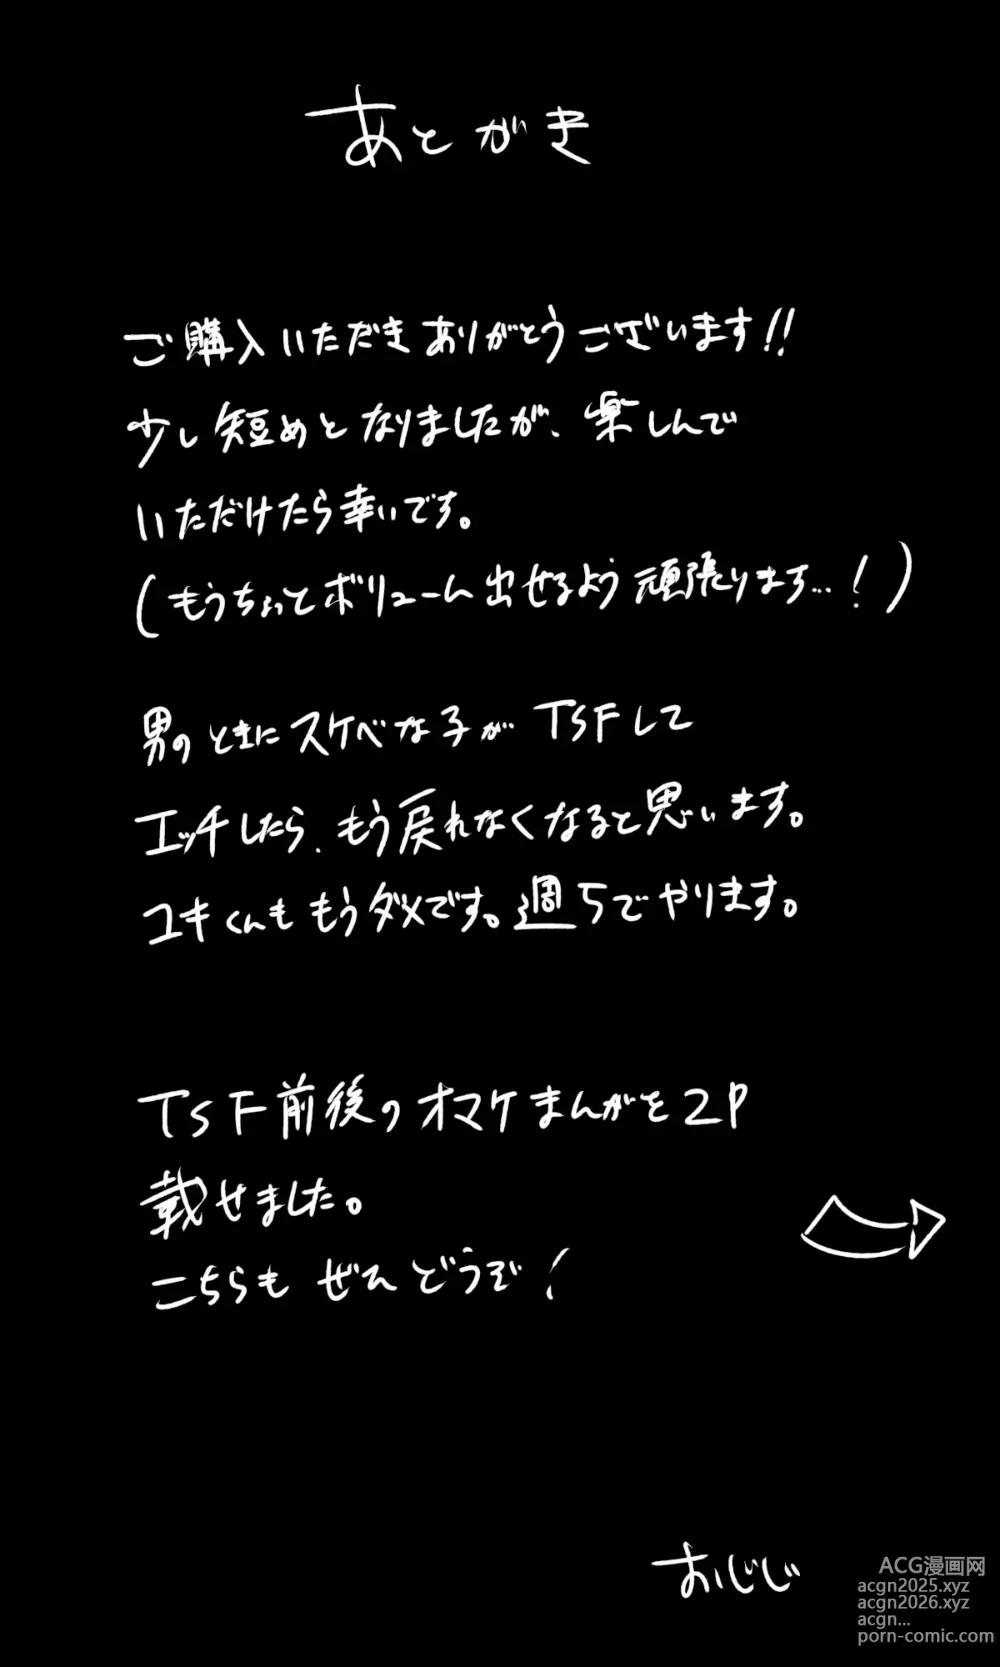 あとがき
ご購入いただきありがとうございます!!
少し短めとなりましたが、楽しんで
いただけたら幸いです。
(もうちょっとボリューム出せるよう頑張ります…!)
男のときにスケベな子がTSFして
エッチしたら、もう戻れなくなると思います。
ユキくんももうダメです。週5でやります。
TSF前後のオマケまんがを2P
載せました。
こちらもぜひどうぞ!
おいじじ
ACG漫画网
acgn2025.xyz
acgn2026.xyz
acgn...
porn-comic.com